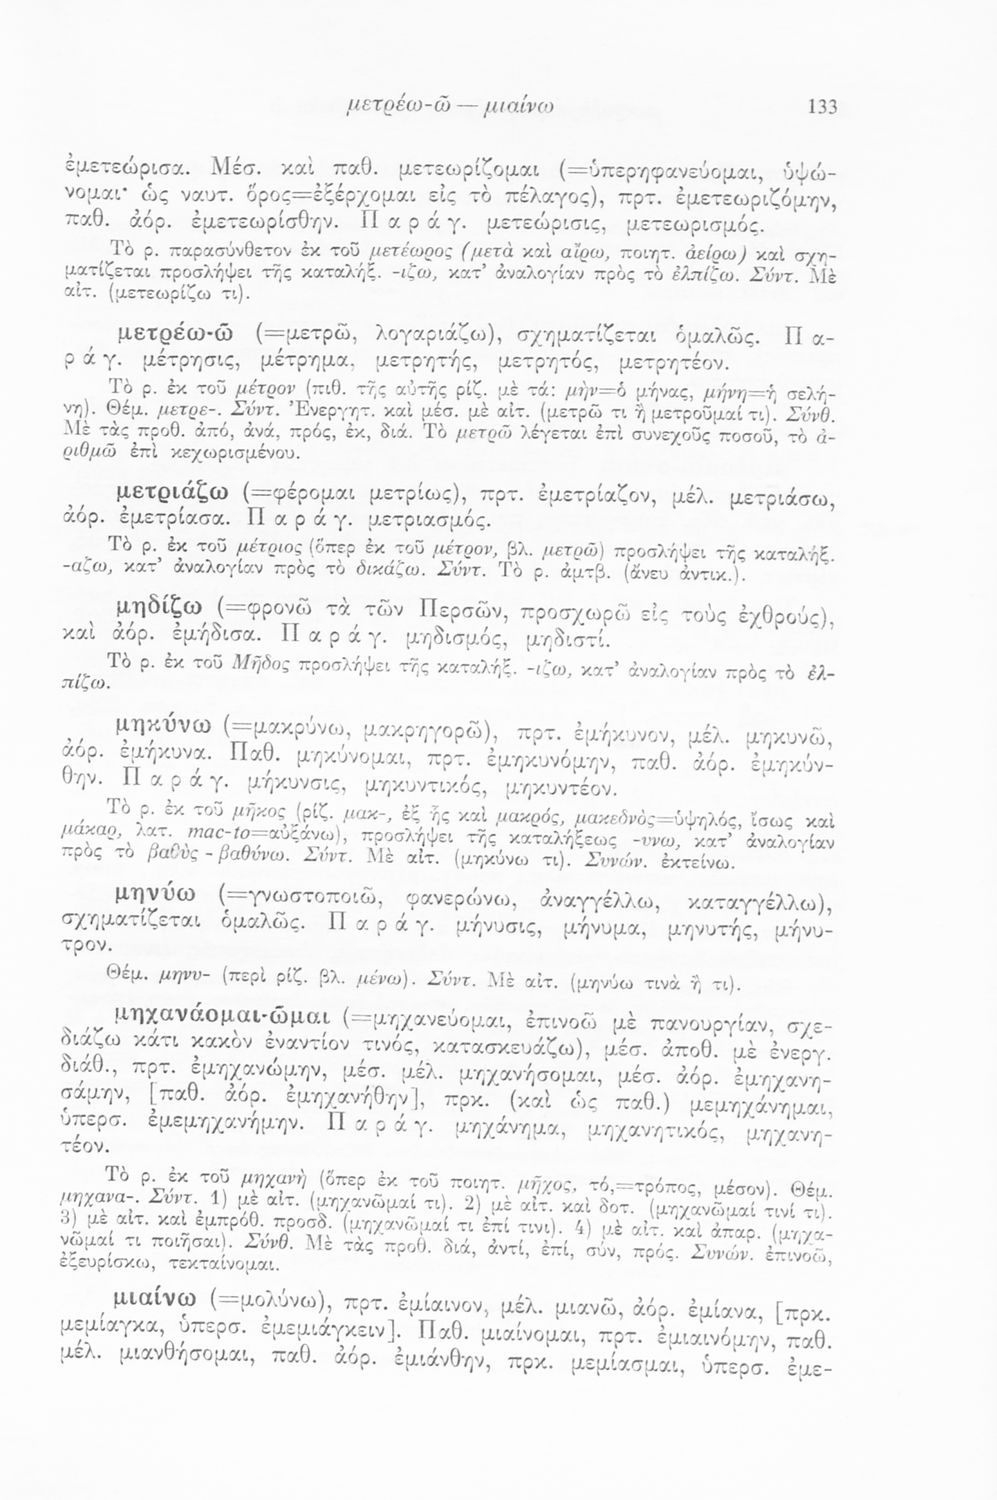 μετρέω-ῶ — μιαίνω 133
ἐμετεώρισα. Μέσ. καὶ παθ. μετεωρίζομαι (=ὑπερηφανεύομαι, ὑψώ-
νομαι· ὡς ναυτ. ὅρος=ἐξέρχομαι εἰς τὸ πέλαγος), πρτ. ἐμετεωριζόμην,
παθ. ἀόρ. ἐμετεωρίσθην. Π α ρ ά γ. μετεώρισις, μετεωρισμός.
Τὸ ρ. παρασύνθετον ἐκ τοῦ μετέωρος (μετὰ καὶ αἴρω, ποιητ. ἀείρω) καὶ σχη-
ματίζεται προσλήψει τῆς καταλήξ. -ιζω, κατ’ ἀναλογίαν πρὸς τὸ ἐλπίζω. Σύντ. Μὲ
αἰτ. (μετεωρίζω τι).
μετρέω-ῶ (=μετρῶ, λογαριάζω), σχηματίζεται ὁμαλῶς. Π α-
ρ ά γ. μέτρησις, μέτρημα, μετρητής, μετρητός, μετρητέον.
Τὸ ρ. ἐκ τοῦ μέτρον (πιθ. τῆς αὐτῆς ρίζ. μὲ τά: μὴν=ὁ μήνας, μήνη=ἡ σελή-
νη). Θέμ. μετρε-. Σύντ. Ἐνεργητ. καὶ μέσ. μὲ αἰτ. (μετρῶ τι ἢ μετροῦμαί τι). Σύνθ.
Μὲ τὰς προθ. ἀπό, ἀνά, πρός, ἐκ, διά. Τὸ μετρῶ λέγεται ἐπὶ συνεχοῦς ποσοῦ, τὸ ἀ-
ριθμῶ ἐπὶ κεχωρισμένου.
μετριάζω (=φέρομαι μετρίως), πρτ. ἐμετρίαζον, μέλ. μετριάσω,
ἀόρ. ἐμετρίασα. Π α ρ ά γ. μετριασμός.
Τὸ ρ. ἐκ τοῦ μέτριος (ὅπερ ἐκ τοῦ μέτρον, βλ. μετρῶ) προσλήψει τῆς καταλήξ.
-αζω, κατ’ ἀναλογίαν πρὸς τὸ δικάζω. Σύντ. Τὸ ρ. ἀμτβ. (ἄνευ ἀντικ.).
μηδίζω (=φρονῶ τὰ τῶν Περσῶν, προσχωρῶ εἰς τοὺς ἐχθρούς),
καὶ ἀόρ. ἐμήδισα. Π α ρ ά γ. μηδισμός, μηδιστί.
Τὸ ρ. ἐκ τοῦ Μῆδος προσλήψει τῆς καταλήξ. -ιζω, κατ’ ἀναλογίαν πρὸς τὸ ἐλ-
πίζω.
μηκύνω (=μακρύνω, μακρηγορῶ), πρτ. ἐμήκυνον, μέλ. μηκυνῶ,
ἀόρ. ἐμήκυνα. Παθ. μηκύνομαι, πρτ. ἐμηκυνόμην, παθ. ἀόρ. ἐμηκύν-
θην. Π α ρ ά γ. μήκυνσις, μηκυντικός, μηκυντέον.
Τὸ ρ. ἐκ τοῦ μῆκος (ρίζ. μακ-, ἐξ ἧς καὶ μακρός, μακεδνὸς=ὑψηλός, ἴσως καὶ
μάκαρ, λατ. mac-to=αὐξάνω), προσλήψει τῆς καταλήξεως -υνω, κατ’ ἀναλογίαν
πρὸς τὸ βαθὺς - βαθύνω. Σύντ. Μὲ αἰτ. (μηκύνω τι). Συνών. ἐκτείνω.
μηνύω (=γνωστοποιῶ, φανερώνω, ἀναγγέλλω, καταγγέλλω),
σχηματίζεται ὁμαλῶς. Π α ρ ά γ. μήνυσις, μήνυμα, μηνυτής, μήνυ-
τρον.
Θέμ. μηνυ- (περὶ ρίζ. βλ. μένω). Σύντ. Μὲ αἰτ. (μηνύω τινὰ ἢ τι).
μηχανάομαι-ῶμαι (=μηχανεύομαι, ἐπινοῶ μὲ πανουργίαν, σχε-
διάζω κάτι κακὸν ἐναντίον τινός, κατασκευάζω), μέσ. ἀποθ. μὲ ἐνεργ.
διάθ., πρτ. ἐμηχανώμην, μέσ. μέλ. μηχανήσομαι, μέσ. ἀόρ. ἐμηχανη-
σάμην, [παθ. ἀόρ. ἐμηχανήθην], πρκ. (καὶ ὡς παθ.) μεμηχάνημαι,
ὑπερσ. ἐμεμηχανήμην. Π α ρ ά γ. μηχάνημα, μηχανητικός, μηχανη-
τέον.
Τὸ ρ. ἐκ τοῦ μηχανὴ (ὅπερ ἐκ τοῦ ποιητ. μῆχος, τό,=τρόπος, μέσον). Θέμ.
μηχανα-. Σύντ. 1) μὲ αἰτ. (μηχανῶμαί τι). 2) μὲ αἰτ. καὶ δοτ. (μηχανῶμαί τινί τι).
3) μὲ αἰτ. καὶ ἐμπρόθ. προσδ. (μηχανῶμαί τι ἐπί τινι). 4) μὲ αἰτ. καὶ ἀπαρ. (μηχα-
νῶμαί τι ποιῆσαι). Σύνθ. Μὲ τὰς προθ. διά, ἀντί, ἐπί, σύν, πρός. Συνών. ἐπινοῶ,
ἐξευρίσκω, τεκταίνομαι.
μιαίνω (=μολύνω), πρτ. ἐμίαινον, μέλ. μιανῶ, ἀόρ. ἐμίανα, [πρκ.
μεμίαγκα, ὑπερσ. ἐμεμιάγκειν]. Παθ. μιαίνομαι, πρτ. ἐμιαινόμην, παθ.
μέλ. μιανθήσομαι, παθ. ἀόρ. ἐμιάνθην, πρκ. μεμίασμαι, ὑπερσ. ἐμε-